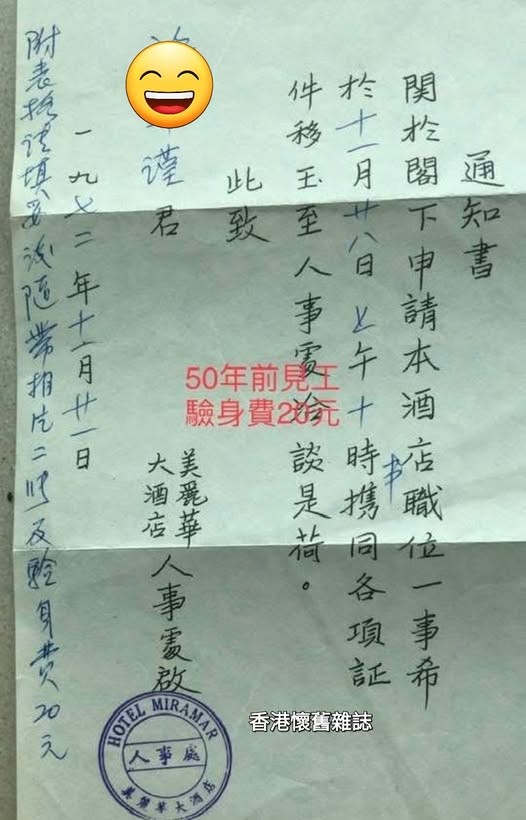 通知書
関於閣下申請本酒店職位一事希
於十一月廿八日上午十時半携同各項証
件移玉至人事處洽談是荷。
此致
謹君
美麗華大酒店人事處啟
一九七二年十一月廿一日
附表格請填妥後隨帶相片二吋及驗身費20元
50年前見工
驗身費20元
HOTEL MIRAMAR
人事處
美麗華大酒店
香港懷舊雜誌